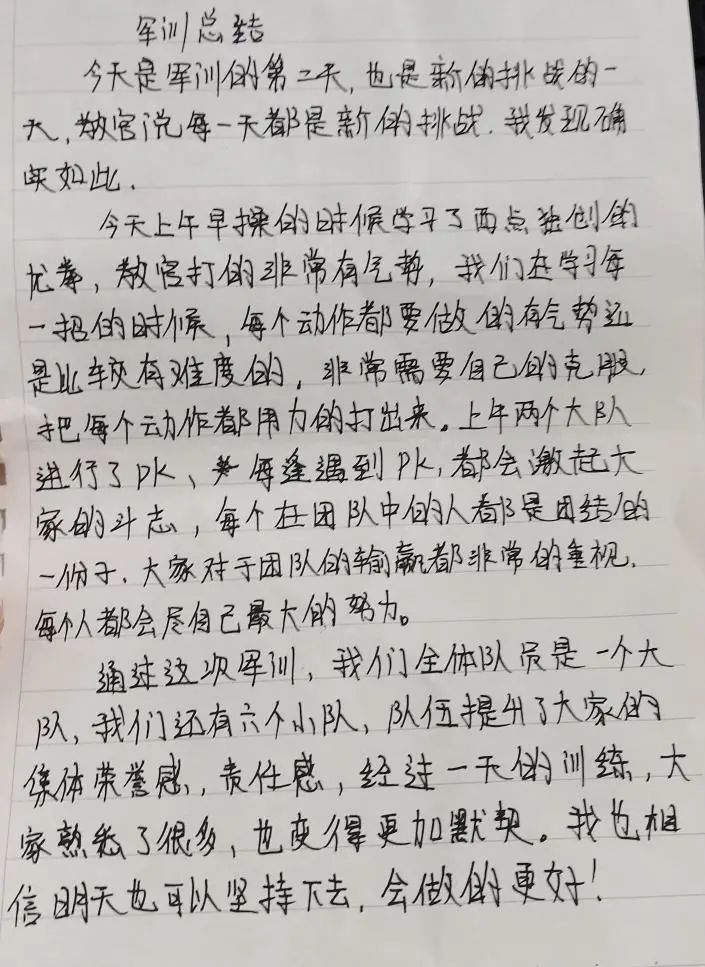 军训总结
今天是军训的第二天,也是新的挑战的一
天,教官说每一天都是新的挑战.我发现确
实如此.
今天上午早操的时候学习了西点独创的
龙拳,教官打的非常有气势,我们在学习每
一招的时候,每个动作都要做的有气势还
是比较有难度的,非常需要自己的克服,
把每个动作都用力的打出来。上午两个大队
进行了PK、每逢遇到PK,都会激起大
家的斗志,每个在团队中的人都是团结的
一份子.大家对于团队的输赢都非常的重视,
每个人都会尽自己最大的努力。
通过这次军训,我们全体队员是一个大
队,我们还有六个小队,队伍提升了大家的
集体荣誉感,责任感,经过一天的训练,大
家熟悉了很多,也变得更加默契。我也相
信明天也可以坚持下去,会做的更好!